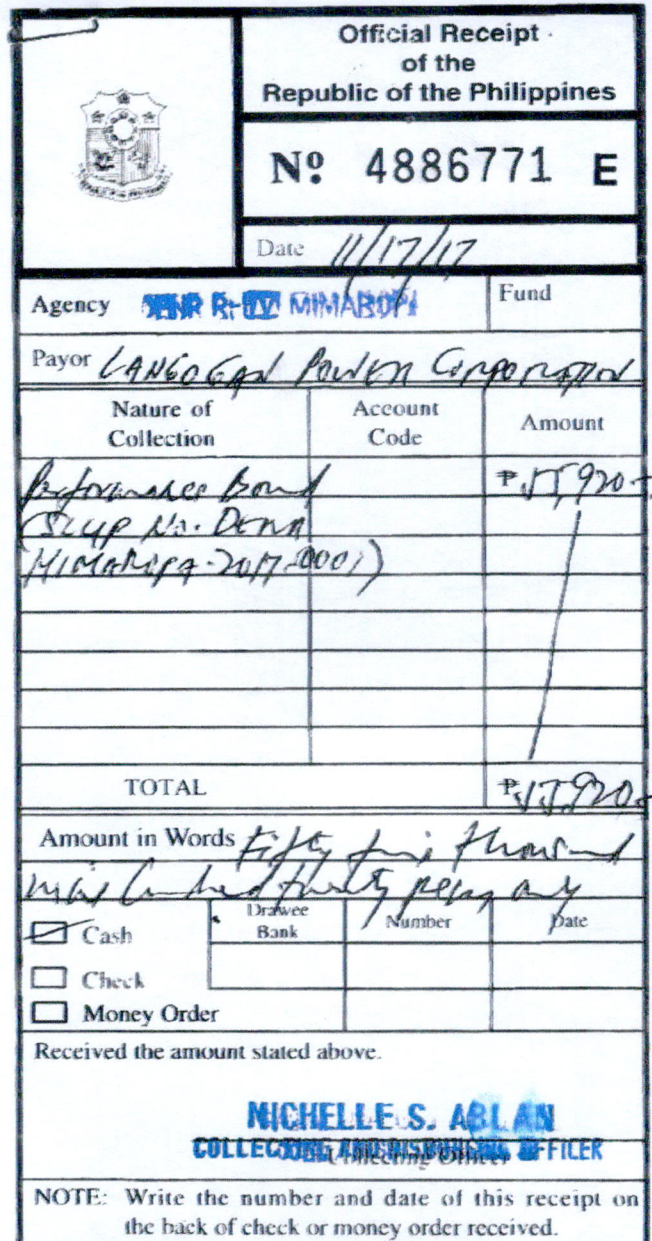 Official Receipt
of the
Republic of the Philippines
Nº 4886771 E
Date 11/17/17
Agency DENR R-IV MIMAROPA
Fund
Payor LANGOGAN POWER CORPORATION
Nature of Collection Account Code Amount
Performance Bond ₱55,920-
(SLUP No. DENR
MIMAROPA-2017-0001)
TOTAL ₱55,920-
Amount in Words Fifty five thousand
nine hundred twenty pesos only
Cash Drawee Bank Number Date
Check
Money Order
Received the amount stated above.
MICHELLE S. ABLAN
COLLECTING AND DISBURSING OFFICER
Collecting Officer
NOTE: Write the number and date of this receipt on
the back of check or money order received.